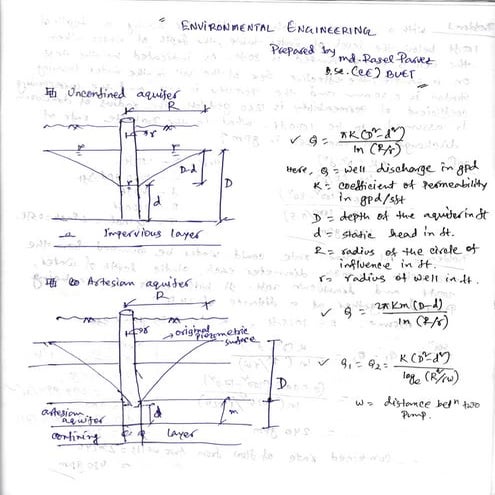 ENVIRONMENTAL ENGINEERING
Prepared by
md. Rasel Parvez
B.Sc. (CE) BUET
Unconfined aquifer
R
r
D-d
D
d
Impervious layer
✓ Q = πK(D²-d²) / ln (R/r)
Here, Q = well discharge in gpd
K = coefficient of permeability
in gpd/sft
D = depth of the aquifer in ft
d = static head in ft.
R = radius of the circle of
influence in ft.
r = radius of well in ft.
Artesian aquifer
R
r
original
Piezometric
surface
D
d
m
artesian
aquifer
confining layer
✓ Q = 2πKm (D-d) / ln (R/r)
✓ q₁ = q₂ = K(D²-d²) / logₑ (R²/rw)
w = distance betⁿ two
Pump.